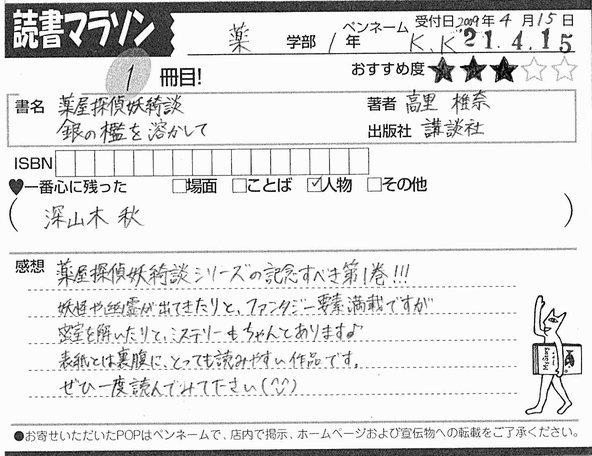 読書マラソン
薬 学部 1年 ペンネーム K.K 受付日 2009年4月15日
'21.4.15
1 冊目! おすすめ度 ★★★☆☆
書名 薬屋探偵妖綺談 銀の檻を溶かして
著者 高里 椎奈
出版社 講談社
ISBN
♥一番心に残った □場面 □ことば ☑人物 □その他
( 深山木 秋 )
感想 薬屋探偵妖綺談シリーズの記念すべき第1巻!!!
妖怪や幽霊が出てきたりと、ファンタジー要素満載ですが
密室を解いたりと、ミステリーもちゃんとあります♪
表紙とは裏腹に、とっても読みやすい作品です。
ぜひ一度読んでみて下さい(^^)
●お寄せいただいたPOPはペンネームで、店内で掲示、ホームページおよび宣伝物への転載をご了承ください。